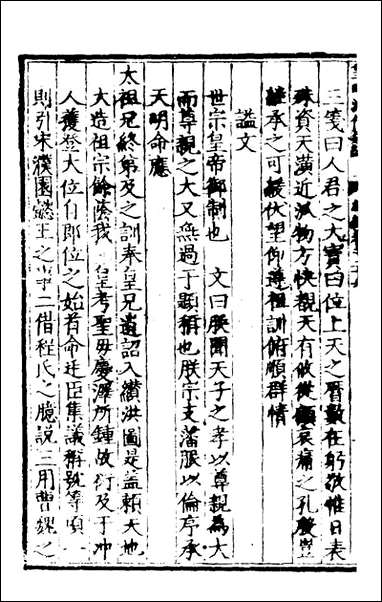 三箋曰人君之大寶曰位上天之曆數在躬敬惟日表
殊資天潢近派物方快覩天有攸從顧哀痛之孔殷豈
繼承之可緩伏望仰遵祖訓俯順群情
諡文
世宗皇帝御制也 文曰朕聞天子之孝以尊親為大
而尊親之大又無過于顯稱也朕宗支藩服以倫序承
天明命應
太祖兄終弟及之訓奉皇兄遺詔入纘洪圖是蓋賴天地
大造祖宗餘蔭我 皇考聖母慶澤所鍾故衍及于冲
人獲登大位自即位之始者命廷臣集議稱號等項一
則引宋濮園懿王之事二借程氏之臆說三用曹魏之